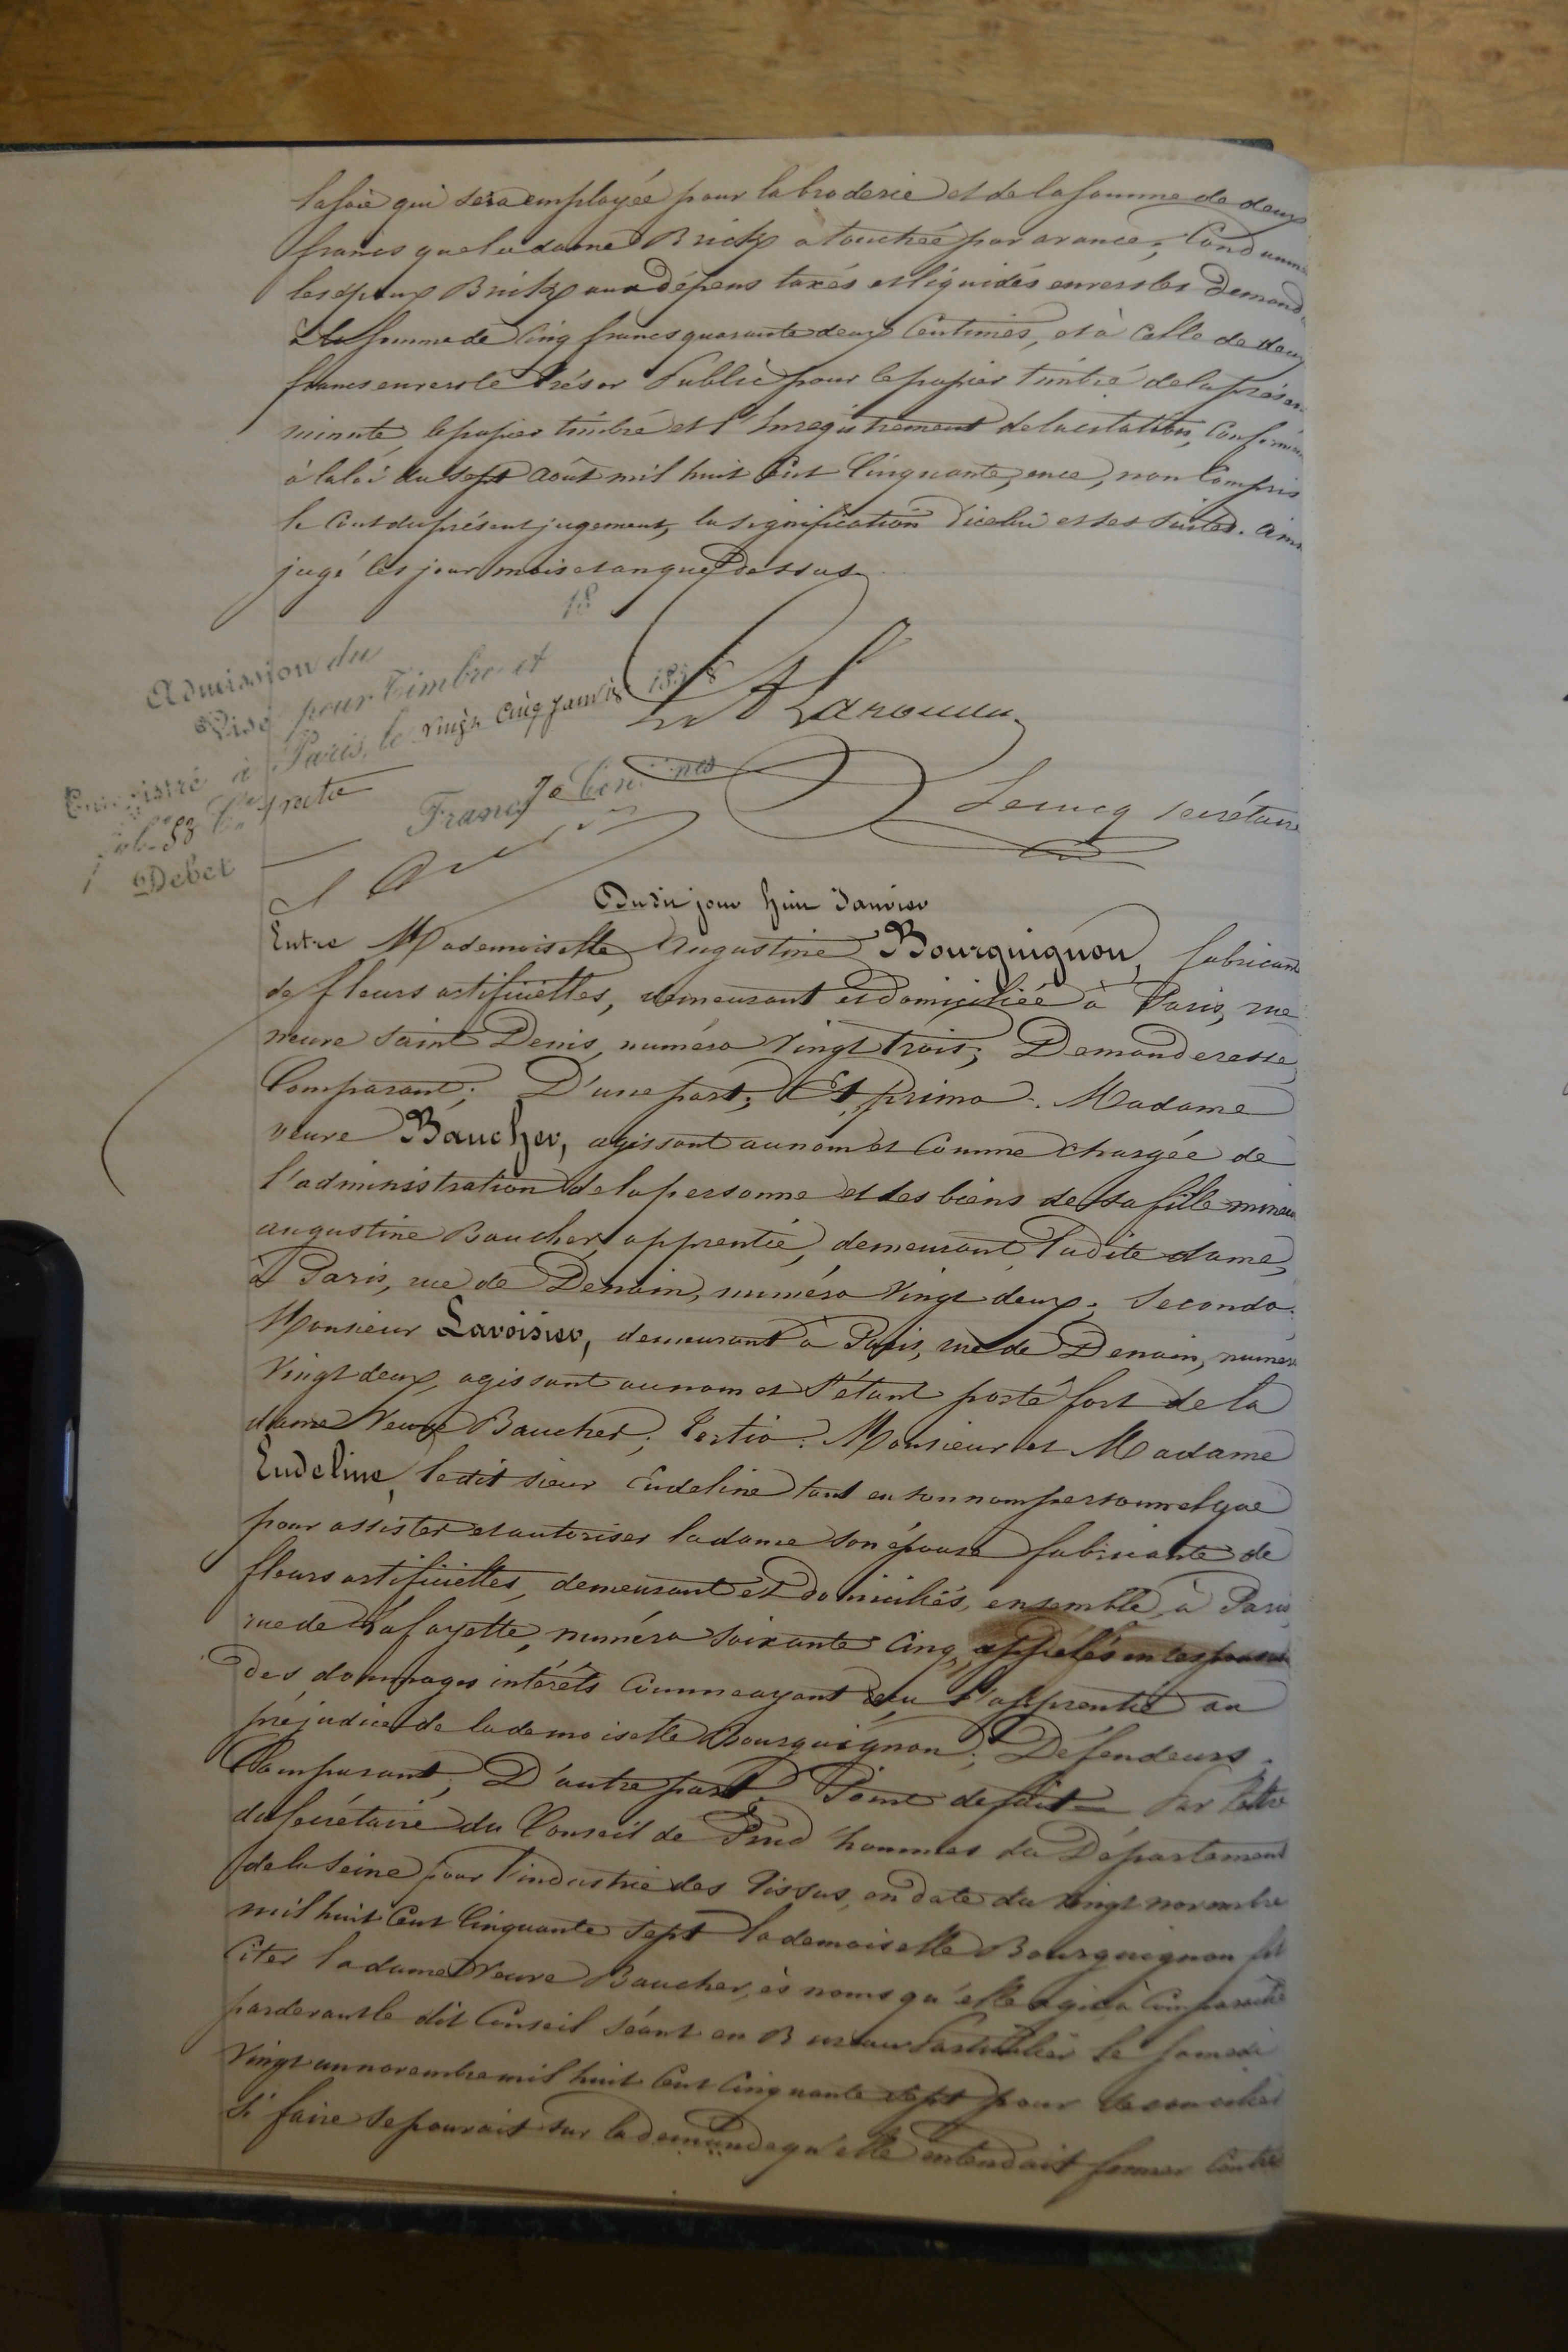 la soie qui sera employée pour la broderie et de la somme de deux
francs que la dame Brick a touchée par avance; Condamne
les époux Brick aux dépens taxés et liquidés envers les Demand
à la somme de Cinq francs quarante deux Centimes, et à Celle de deux
francs envers le Trésor Public pour le papier timbré de la présen
minute, le papier timbré et l'Enregistrement de la citation, Conformé
à la loi du sept août mil huit Cent Cinquante, ence, non Compris
le Cout du présent jugement, la signification d'icelui et ses suites. Ains
jugé les jour, mois et an que Dessus
18
Admission du
Visé pour Timbre et
Enregistré à Paris, le vingt Cinq janvier 1858
Debet
Franc 70 Centimes
Lecucq secrétaire
Dudit jour huit Janvier
Entre Mademoiselle Augustine Bourguignon, fabricante
de fleurs artificielles, demeurant et domiciliée à Paris, rue
neuve Saint Denis, numéro Vingt trois; Demanderesse;
Comparant; D'une part; Et, primo. Madame
veuve Baucher, agissant au nom et Comme chargée de
l'administration de la personne et des biens de sa fille mineu
augustine Baucher, apprentie, demeurant, ladite dame,
à Paris, rue de Denain, numéro Vingt deux; Secondo.
Monsieur Lavoisier, demeurant à Paris, rue de Denain, numéro
Vingt deux, agissant au nom et s'étant porté fort de la
dame Veuve Baucher; tertio: Monsieur et Madame
Eudeline, ledit sieur Eudeline tant en son nom personnel que
pour assister et autoriser la dame son épouse fabricante de
fleurs artificielles, demeurant et domiciliés, ensemble, à Paris
rue de Lafayette, numéro Soixante Cinq, appelés en
des dommages intérêts Comme ayant reçu l'apprentie au
préjudice de la demoiselle Bourguignon; Défendeurs.
Comparant; D'autre part. Point de fait – Par lettre
du secrétaire du Conseil de Prud'hommes du Département
de la Seine pour l'industrie des Tissus, en date du vingt novembre
mil huit Cent Cinquante sept la demoiselle Bourguignon fit
Citer la dame Veuve Baucher, ès noms qu'elle agit à Comparaître
pardevant le dit Conseil séant en Bureau Particulier le samedi
Vingt un novembre mil huit Cent Cinquante sept pour se concilier
si faire se pouvait sur la demande qu'elle entendait former Contre